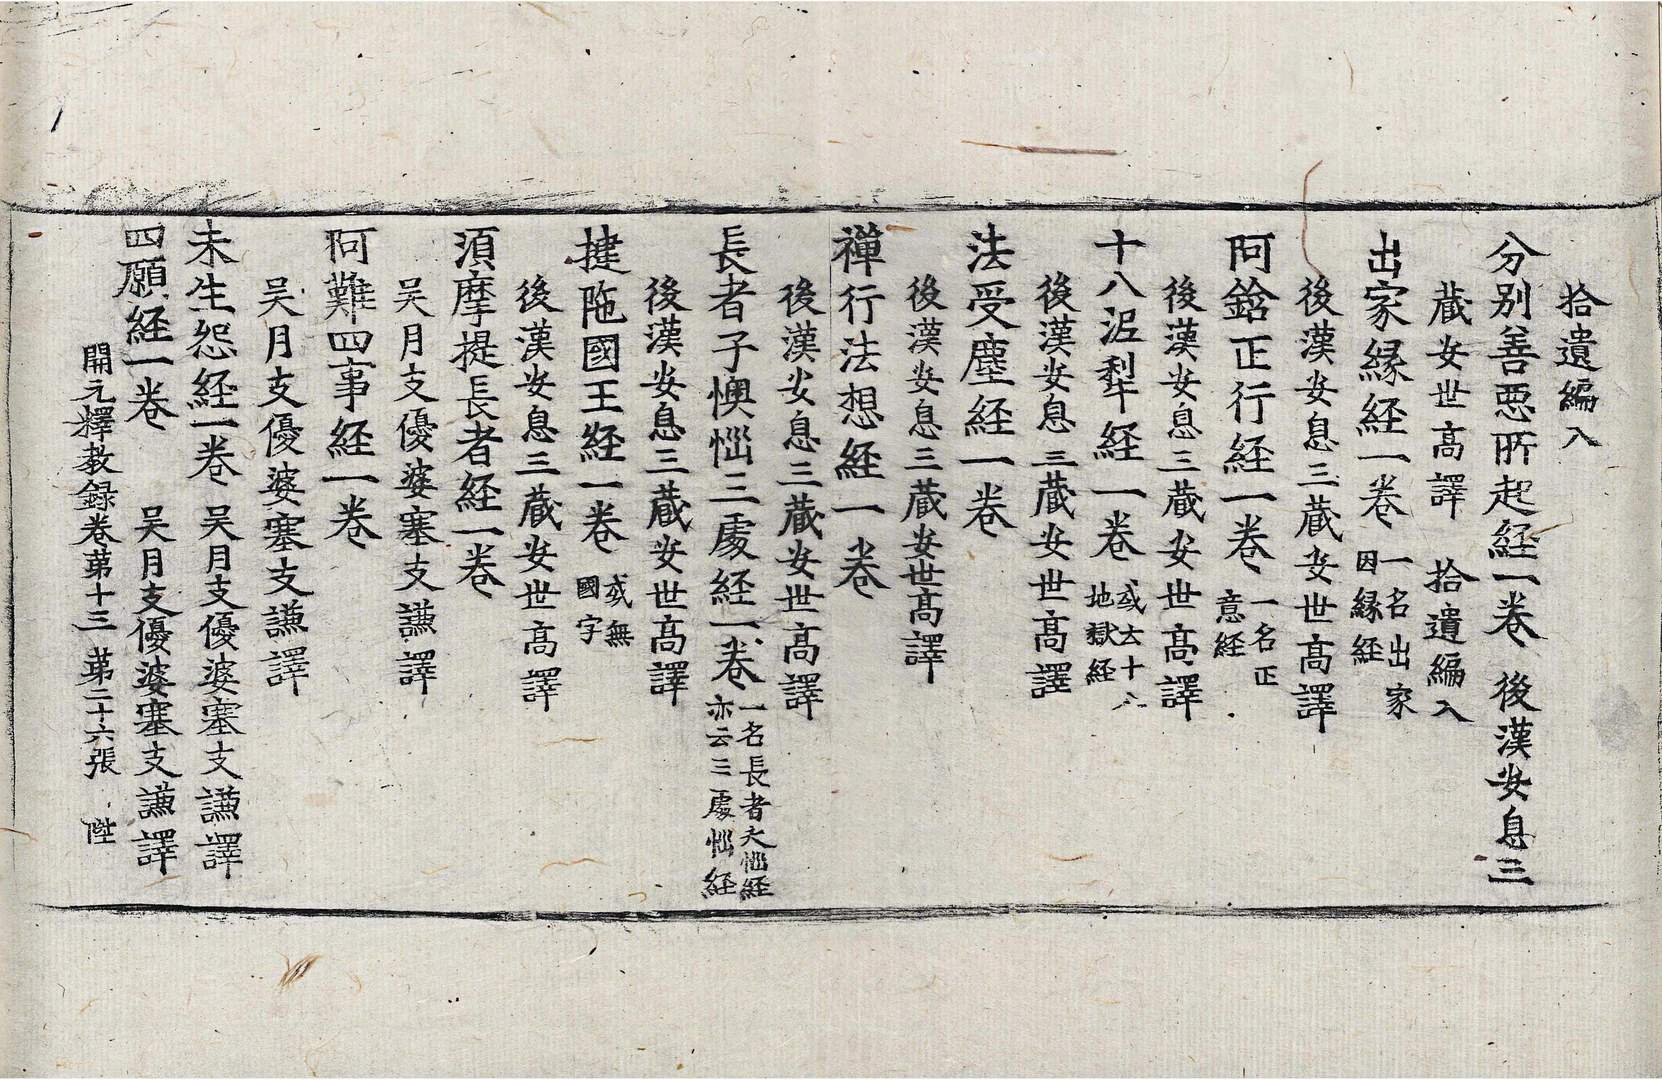 拾遺編入
分別善惡所起経一卷 後漢安息三
藏安世髙譯 拾遺編入
出家縁経一卷 一名出家因縁経
後漢安息三藏安世髙譯
阿鋡正行経一卷 一名正意経
後漢安息三藏安世髙譯
十八泥犁経一卷 或云十八地獄経
後漢安息三藏安世髙譯
法受塵経一卷
後漢安息三藏安世髙譯
禪行法想経一卷
後漢安息三藏安世髙譯
長者子懊惱三處経一卷 一名長者夭惱経亦云三處惱経
後漢安息三藏安世髙譯
揵陁國王経一卷 或無國字
後漢安息三藏安世髙譯
須摩提長者経一卷
吴月支優婆塞支謙譯
阿難四事経一卷
吴月支優婆塞支謙譯
未生怨経一卷 吴月支優婆塞支謙譯
四願経一卷 吴月支優婆塞支謙譯
開元釋教録卷苐十三 苐二十六張 陛